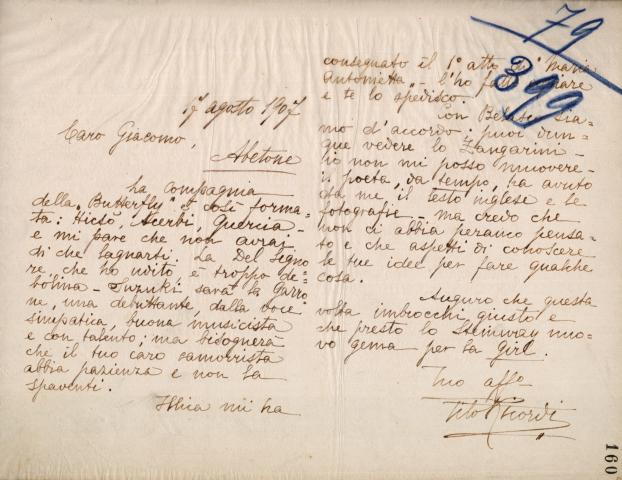 17 agosto 1907
Caro Giacomo,
Abetone
La compagnia
della "Butterfly" è così forma-
ta: Acerbi, Quercia -
e mi pare che non avrai
di che lagnarti. La Del Signo
re, che ho udito, è troppo de-
bolina - Suzuki sarà la Garro
ne, una debuttante, dalla voce
simpatica, buona musicista
e con talento; ma bisognerà
che il tuo caro samorrista
abbia pazienza e non la
spaventi.
Illica mi ha
consegnato il 1° atto di "Maria
Antonietta" - l'ho fatto
e te lo spedisco.
Con Belasco sia-
mo d'accordo: puoi dun-
que vedere lo Zangarini -
Io non mi posso muovere -
il poeta, da tempo, ha avuto
da me il testo inglese e le
fotografie - ma credo che
non ci abbia peranco pensa-
to e che aspetti di conoscere
le tue idee per fare qualche
cosa.
Auguro che questa
volta imbrocchi giusto e
che presto lo Steinway nuo-
vo gema per la Girl.
Tuo affo
Tito Ricordi
79
399
160